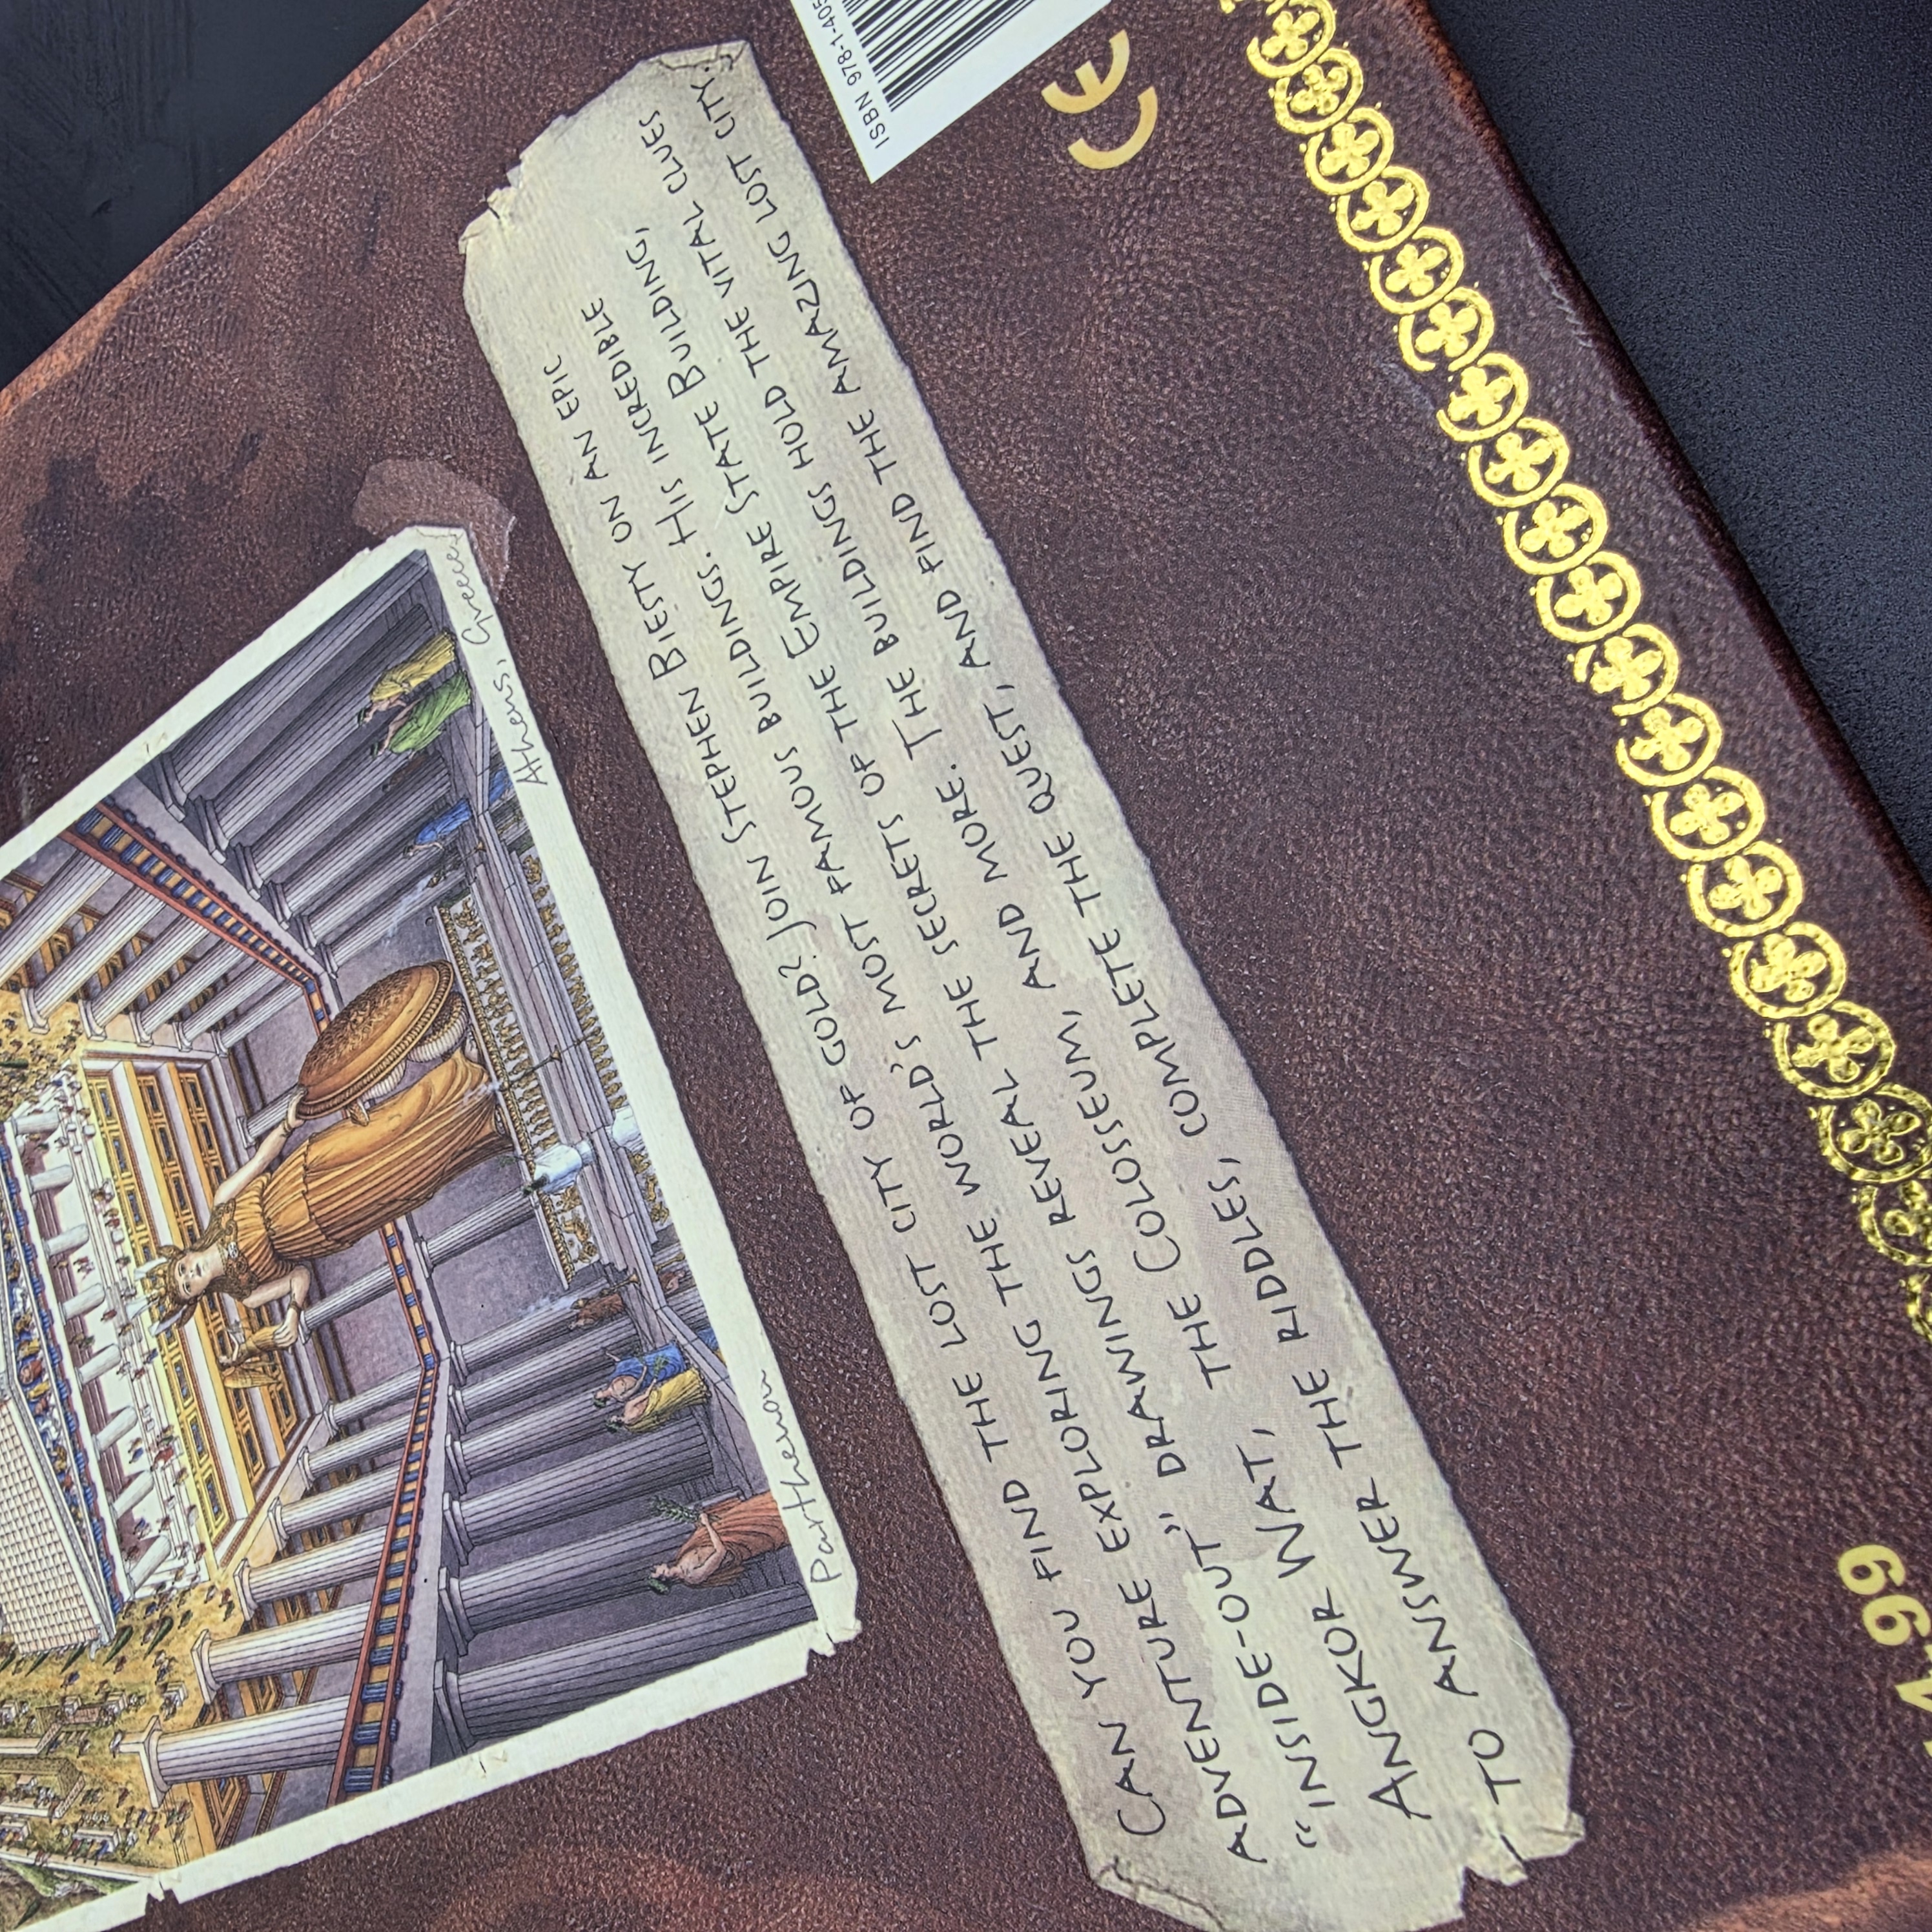 Parthenon
Athens, Greece
CAN YOU FIND THE LOST CITY OF GOLD? JOIN STEPHEN BIESTY ON AN EPIC
ADVENTURE EXPLORING THE WORLD'S MOST FAMOUS BUILDINGS. HIS INCREDIBLE
"INSIDE-OUT" DRAWINGS REVEAL THE SECRETS OF THE EMPIRE STATE BUILDING,
ANGKOR WAT, THE COLOSSEUM, AND MORE. THE BUILDINGS HOLD THE VITAL CLUES
TO ANSWER THE RIDDLES, COMPLETE THE QUEST, AND FIND THE AMAZING LOST CITY.
ISBN 978-1-405
CE
.99